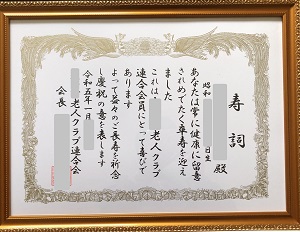 寿詞
殿
昭和 日生
あなたは常に健康に留意
されめでたく卒寿を迎え
ました
これは、 老人クラブ
連合会員にとって喜びで
あります
よって益々のご長寿を祈念
し慶祝の意を表します
令和五年一月
老人クラブ連合会
会長